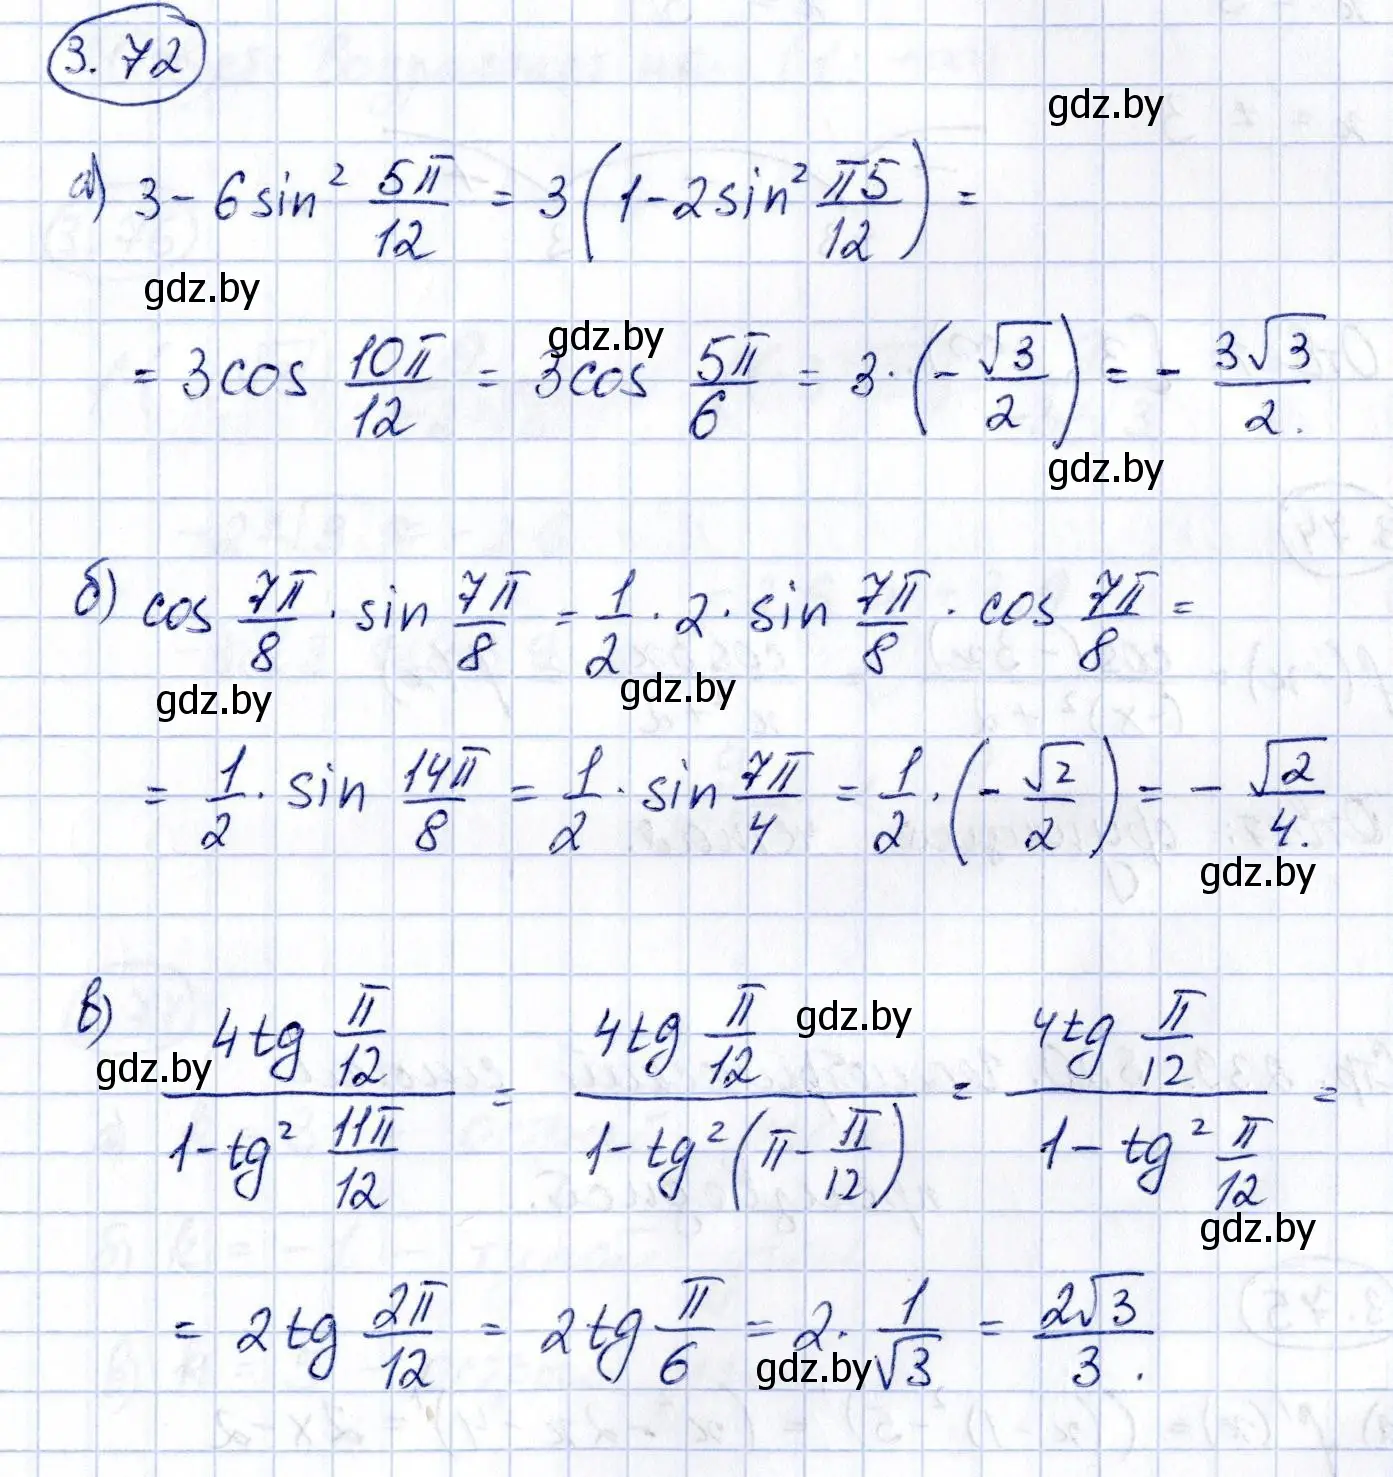 3.72
gdz.by
а) 3 - 6 sin² 5π/12 = 3(1 - 2 sin² π5/12) =
gdz.by
gdz.by
= 3 cos 10π/12 = 3 cos 5π/6 = 3 · (- √3/2) = - 3√3/2.
gdz.by
б) cos 7π/8 · sin 7π/8 = 1/2 · 2 · sin 7π/8 · cos 7π/8 =
gdz.by gdz.by
= 1/2 · sin 14π/8 = 1/2 · sin 7π/4 = 1/2 · (- √2/2) = - √2/4.
gdz.by
в) 4 tg π/12 / (1 - tg² 11π/12) = 4 tg π/12 / (1 - tg² (π - π/12)) = 4 tg π/12 / (1 - tg² π/12) =
gdz.by
gdz.by
gdz.by
= 2 tg 2π/12 = 2 tg π/6 = 2 · 1/√3 = 2√3/3.
gdz.by